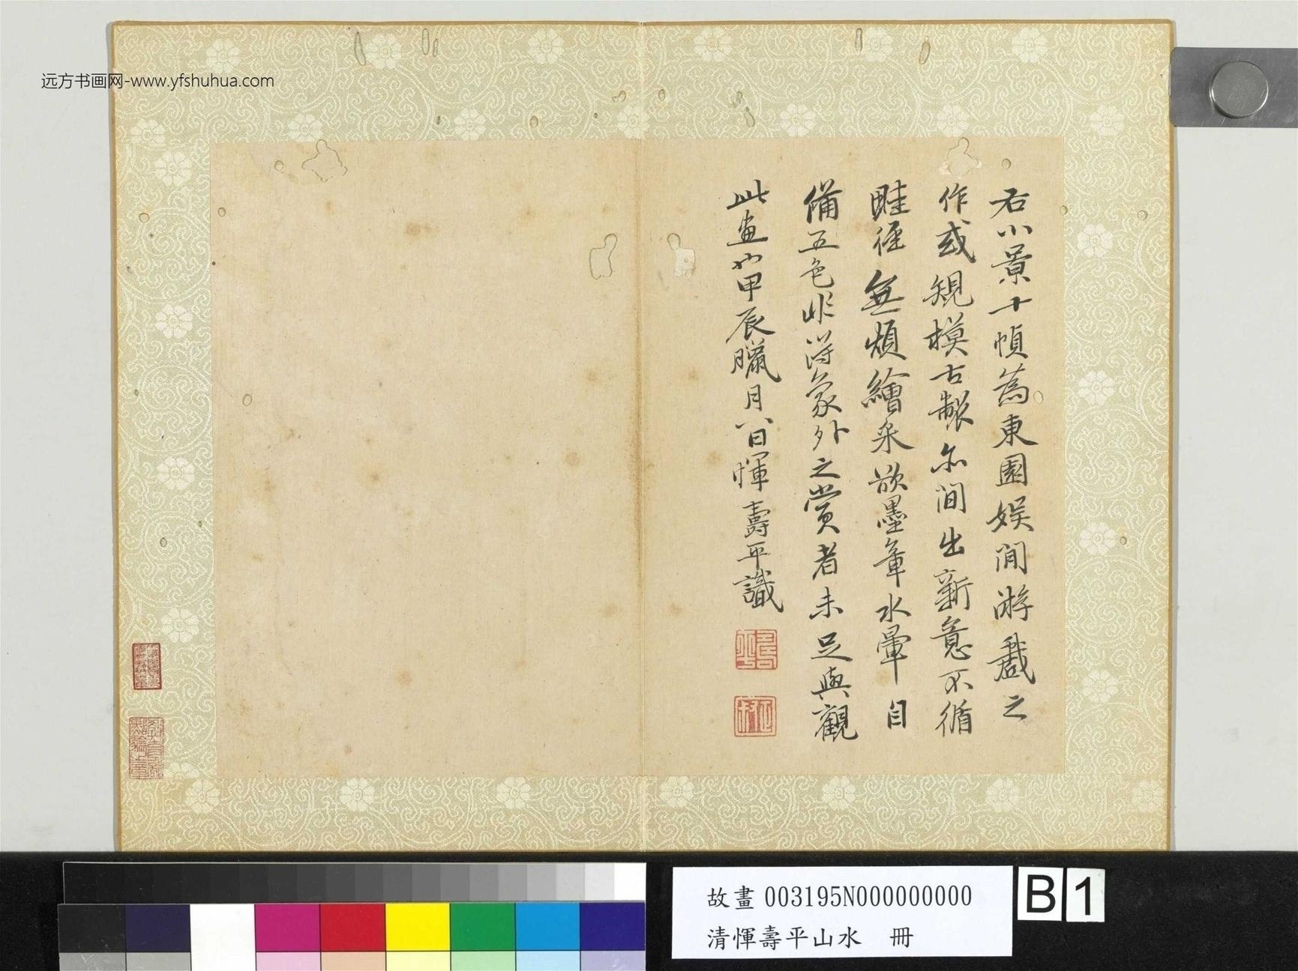 远方书画网-www.yfshuhua.com
右小景十幀為東園娛閒游戲之
作或規模古製亦間出新意不循
畦徑無煩繪采欲墨章水暈自
備五色非得象外之賞者未足與觀
此畫也甲辰臘月八日惲壽平識
故畫 003195N000000000
清惲壽平山水 冊
B 1